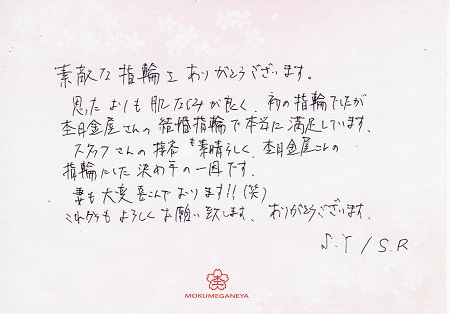 素敵な指輪をありがとうございます。
思ったよりも肌なじみが良く、初の指輪でしたが
杢目金屋さんの結婚指輪で本当に満足しています。
スタッフさんの接客も素晴らしく、杢目金屋さんの
指輪にした決め手の一因です。
妻も大変喜こんでおります!!(笑)
これからもよろしくお願い致します。ありがとうございます。
S.Y / S.R
MOKUMEGANEYA